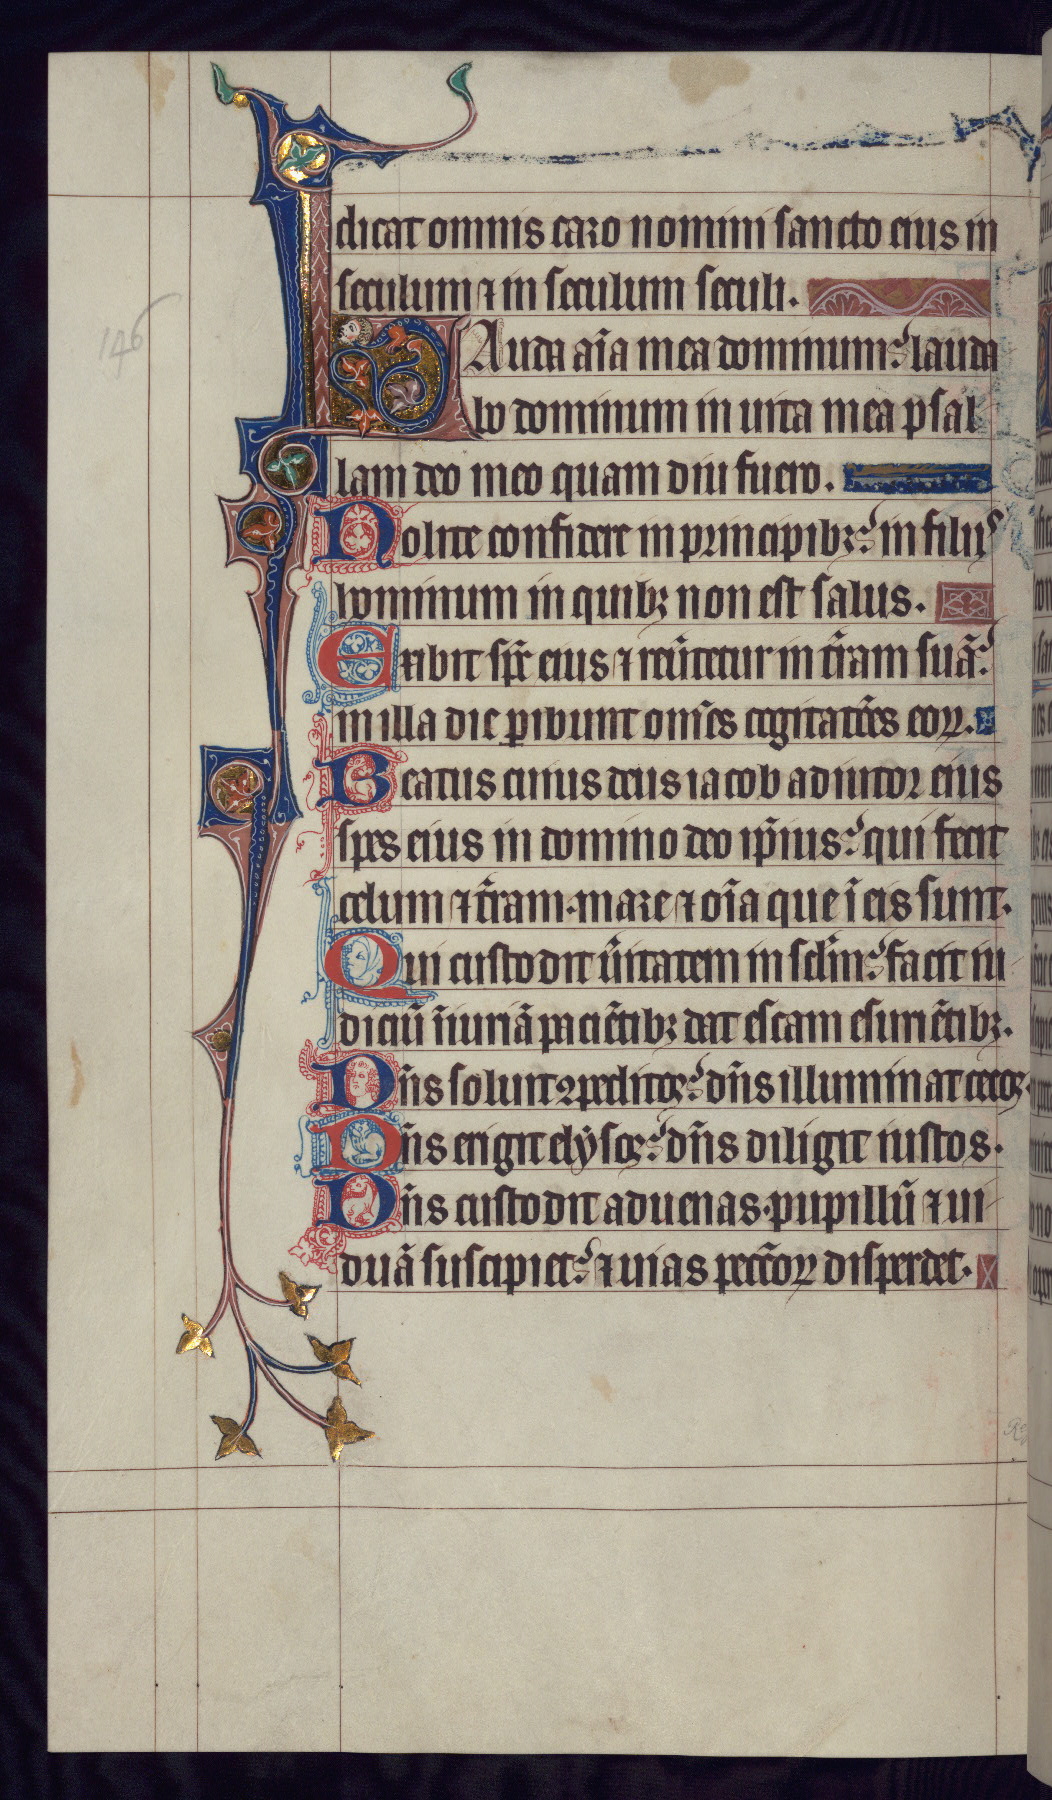 dicat omnis caro nomini sancto eius in
seculum ⁊ in seculum seculi.
146
LAuda aīa mea dominum: lauda
bo dominum in uita mea psal
lam deo meo quam diu fuero.
Nolite confidere in principibꝫ: in filiis
hominum in quibꝫ non est salus.
Exibit sp̄c eius ⁊ reūtetur in t̄ram suā:
in illa die ꝑibunt om̄es cogitatōes eoꝝ.
Beatus cuius deus iacob adiutor eius
spes eius in domino deo ip̄ius: qui fecit
celum ⁊ t̄ram. mare ⁊ oīa que ī eis sunt.
Qui custodit ūitatem in sc̄lm: facit iu
diciū īiuriā paciētibꝫ dat escam esuriētibꝫ.
Dn̄s soluit ꝯpeditos: dn̄s illuminat cecos.
Dn̄s erigit elysos: dn̄s diligit iustos.
Dn̄s custodit aduenas. pupillū ⁊ ui
duā suscipiet: ⁊ uias pecc̄oꝝ disperdet.